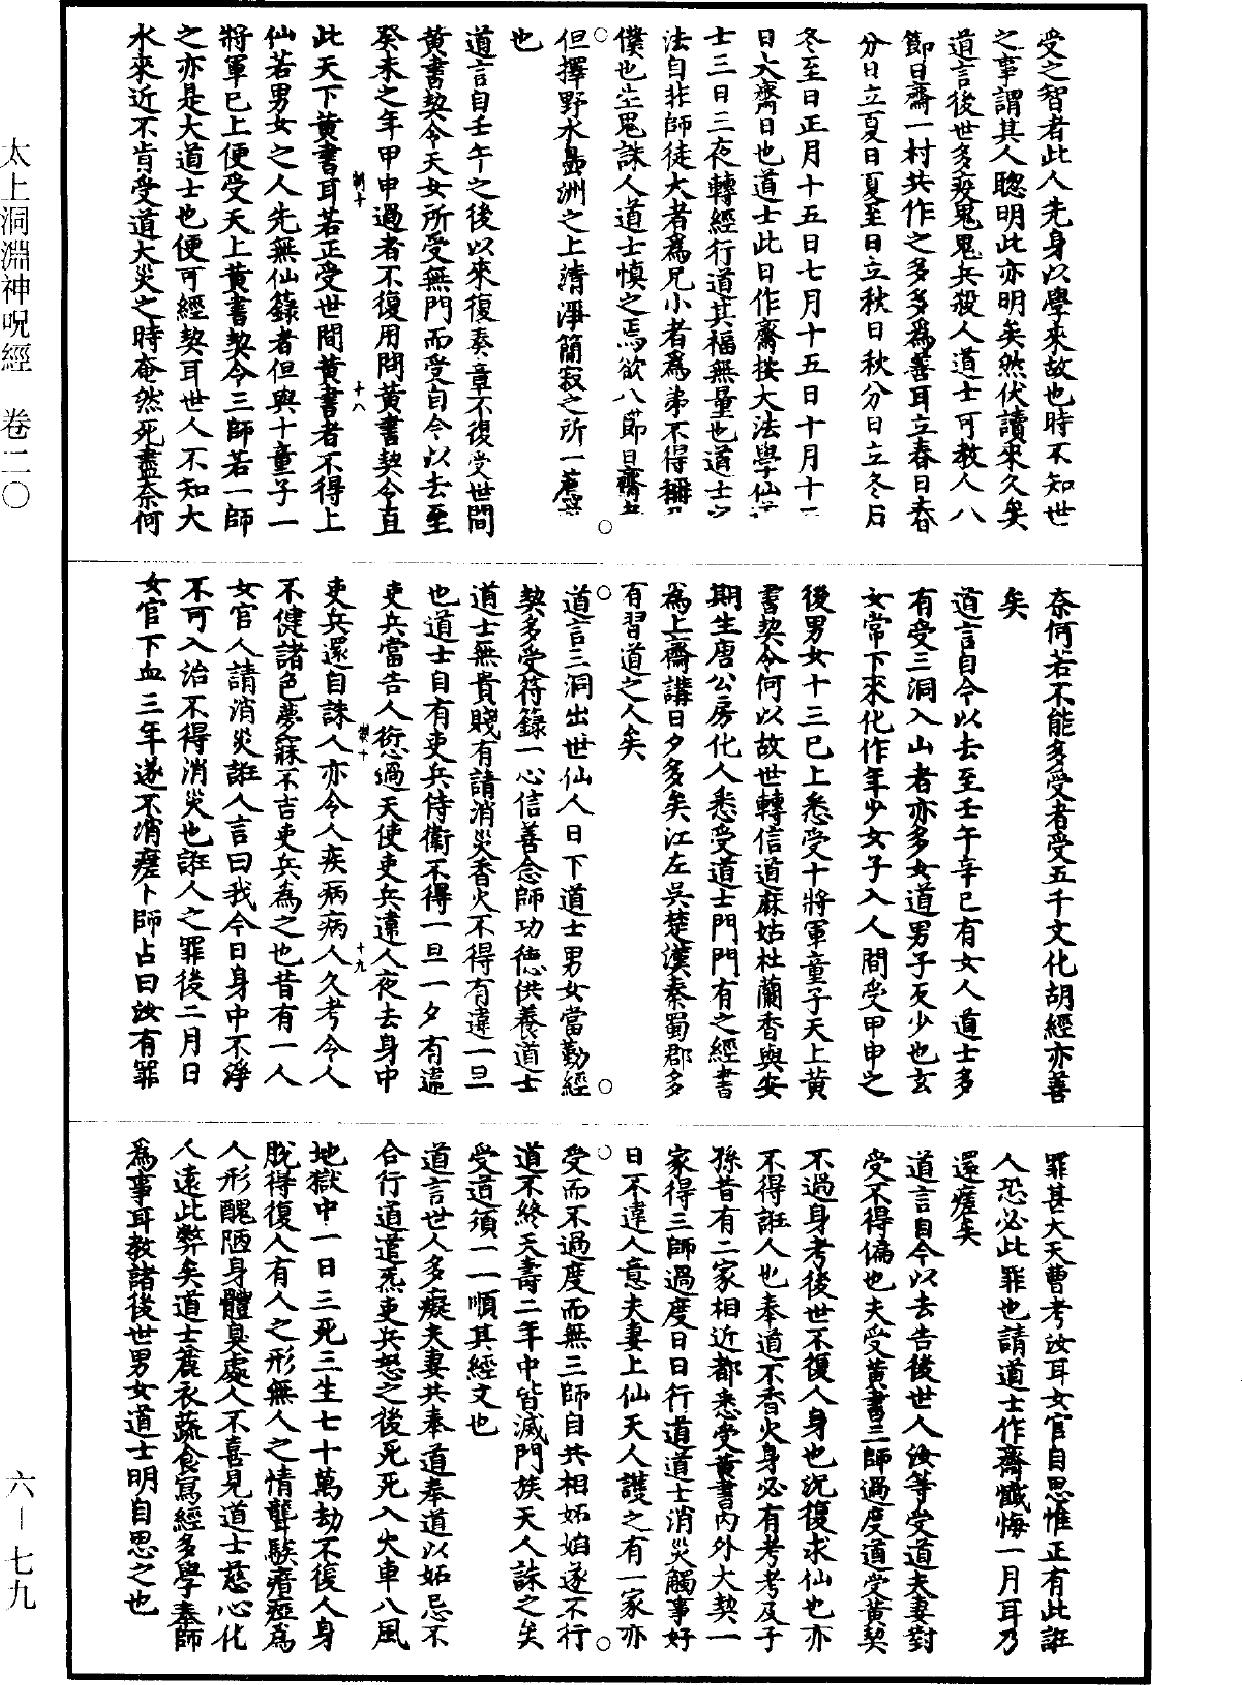 受之智者此人先身以學來故也時不知世
之事謂其人聰明此亦明矣然伏讀來久矣
道言後世多疫鬼鬼兵殺人道士可教人八
節日齋一村共作之多多爲善耳立春日春
分日立夏日夏至日立秋日秋分日立冬日
冬至日正月十五日七月十五日十月十
日大齋日也道士此日作齋按大法學仙
士三日三夜轉經行道其福無量也道士
法自非師徒大者爲兄小者爲弟不得
僕也生鬼誅人道士慎之焉欲八節日齋
但擇野水島洲之上清淨簡寂之所一
也
道言自壬午之後以來復奏章不復受世間
黃書契令天女所受無門而受自今以去至
癸未之年甲申過者不復用問黃書契令直
此天下黃書耳若正受世間黃書者不得上
仙若男女之人先無仙籙者但與十童子一
將軍已上便受天上黃書契令三師若一師
之亦是大道士也便可經契耳世人不知大
水來近不肯受道大災之時奄然死盡奈何
奈何若不能多受者受五千文化胡經亦善
矣
道言自今以去至壬午辛巳有女人道士多
有受三洞入山者亦多女道男子反少也玄
女常下來化作年少女子入人間受甲申之
後男女十三已上悉受十將軍童子天上黃
書契令何以故世轉信道麻姑杜蘭香與安
期生唐公房化人悉受道士門門有之經書
爲上齋講日夕多矣江左吳楚漢秦蜀郡多
有習道之人矣
道言三洞出世仙人日下道士男女當勤經
契多受符籙一心信善念師功德供養道士
道士無貴賤有請消災香火不得有違一旦
也道士自有吏兵侍衛不得一旦一夕有違
吏兵當告人愆過天使吏兵違人夜去身中
吏兵還自誅人亦令人疾病病人久考令人
不健諸色夢寐不吉吏兵爲之也昔有一人
女官人請消災誑人言曰我今日身中不淨
不可入治不得消災也誑人之罪後二月日
女官下血三年遂不消瘥卜師占曰汝有罪
罪甚大天曹考汝耳女官自思惟正有此誑
人恐必此罪也請道士作齋懺悔一月耳乃
還瘥矣
道言自今以去告後世人汝等受道夫妻對
受不得偏也夫受黃書三師過度道受黃契
不過身考後世不復人身也況復求仙也亦
不得誑人也奉道不香火身必有考考及子
孫昔有二家相近都悉受黃書內外大契一
家得三師過度日日行道道士消災觸事好
日不違人意夫妻上仙天人護之有一家亦
受而不過度而無三師自共相妬姤遂不行
道不終天壽二年中皆滅門族天人誅之矣
受道須一一順其經文也
道言世人多癡夫妻共奉道奉道以妬忌不
合行道道炁吏兵怒之後死死入火車八風
地獄中一日三死三生七十萬劫不復人身
脫得復人有人之形無人之情聾騃瘖瘂爲
人形醜陋身體臭處人不喜見道士慈心化
人遠此弊矣道士麄衣蔬食寫經多學奉師
爲事耳教諸後世男女道士明自思之也
十八
十九
太上洞淵神呪經 卷二〇
六－七九